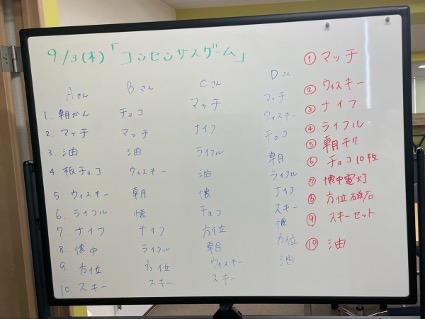 9/3(木)「コンセンサスゲーム」
Aさん Bさん Cさん Dさん
1. 朝かん チョコ マッチ マッチ
2. マッチ マッチ ナイフ ウィスキー
3. 油 油 ライフル チョコ
4. 板チョコ ウィスキー 油 朝
5. ウィスキー 朝 懐 ライフル
6. ライフル 懐 チョコ ナイフ
7. ナイフ ナイフ 方位 スキー
8. 懐中 ライフル 朝 懐
9. 方位 方位 ウィスキー 方位
10. スキー スキー スキー 油
① マッチ
② ウィスキー
③ ナイフ
④ ライフル
⑤ 朝チリ
⑥ チョコ10枚
⑦ 懐中電灯
⑧ 方位磁石
⑨ スキーセット
⑩ 油